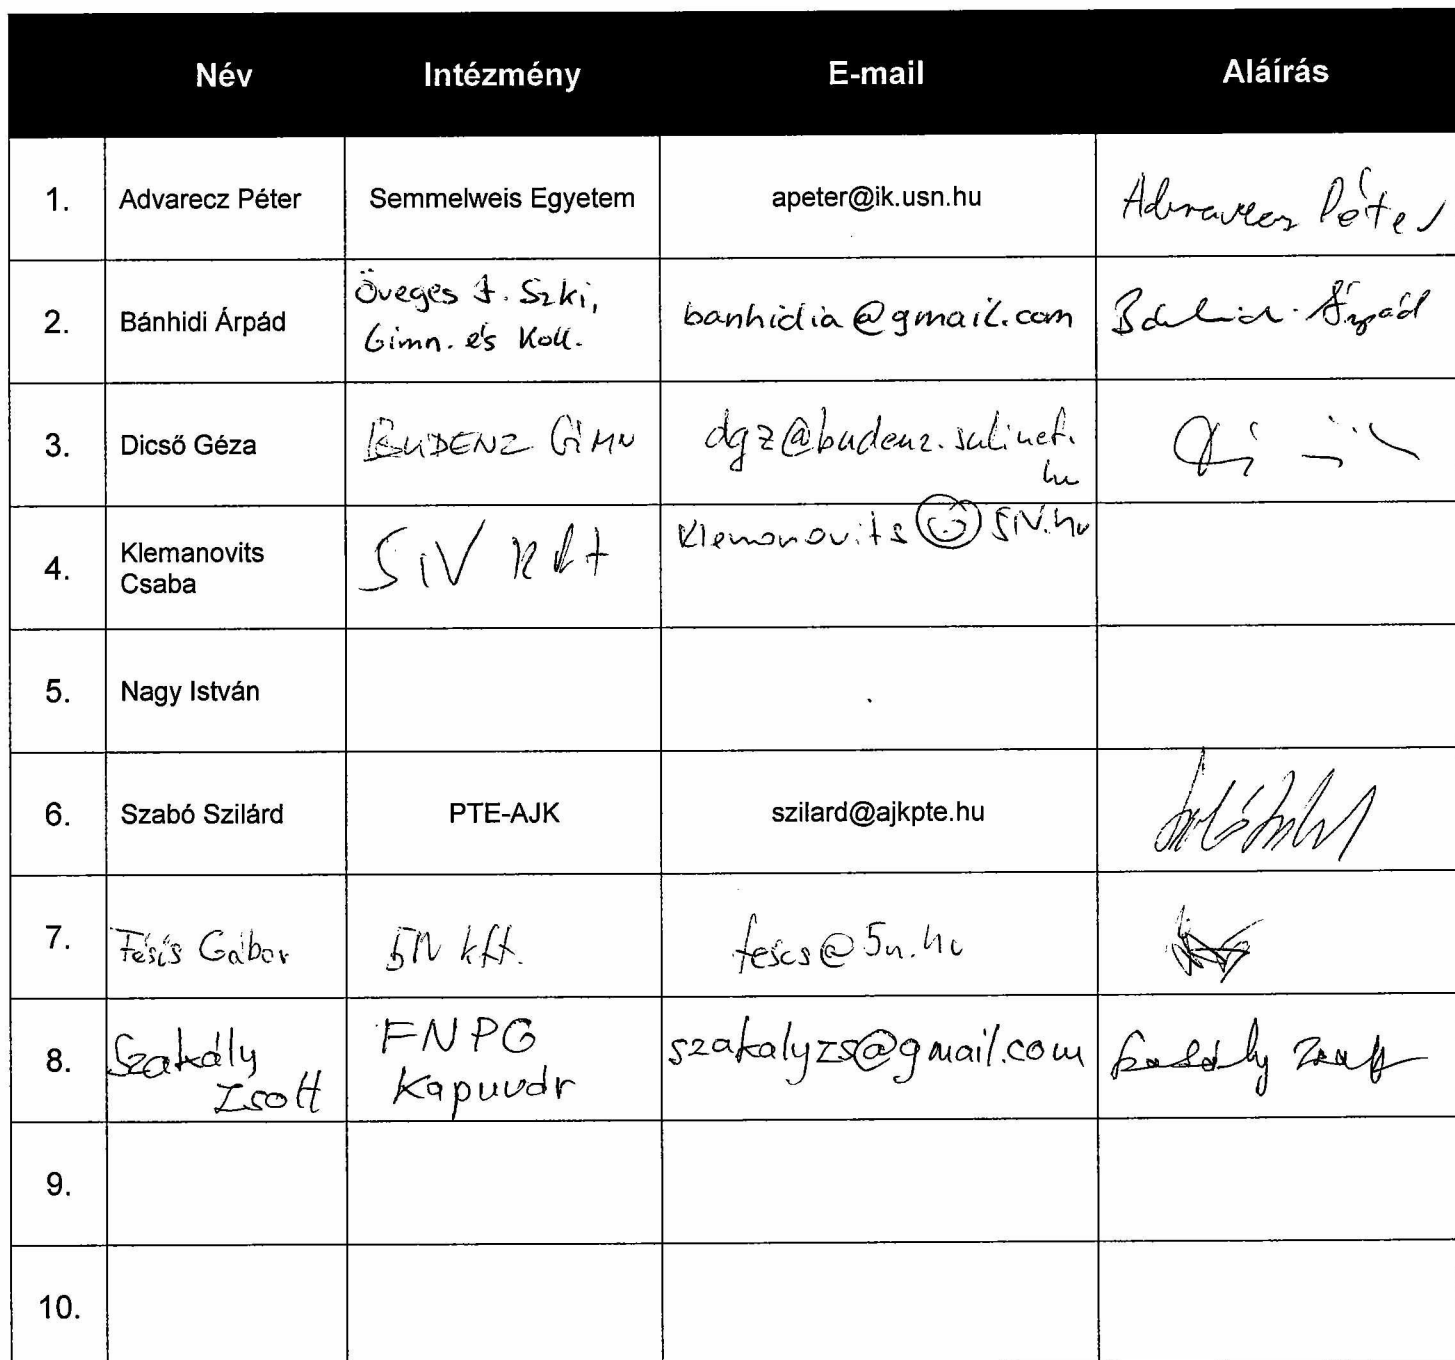 Név Intézmény E-mail Aláírás
1. Advarecz Péter Semmelweis Egyetem apeter@ik.usn.hu Péter
2. Bánhidi Árpád Öveges J. Szki, Gimn. és Koll. banhidia@gmail.com Árpád
3. Dicső Géza BUDENZ GIMN dgz@budenz.sulinet.hu
4. Klemanovits Csaba SIV Kft Klemanovits@SIV.hu
5. Nagy István
6. Szabó Szilárd PTE-AJK szilard@ajkpte.hu
7. Gábor 5N kft.
8. Szakály Zsolt FNPG Kapuvár szakalyzs@gmail.com Szakály Zsolt
9.
10.